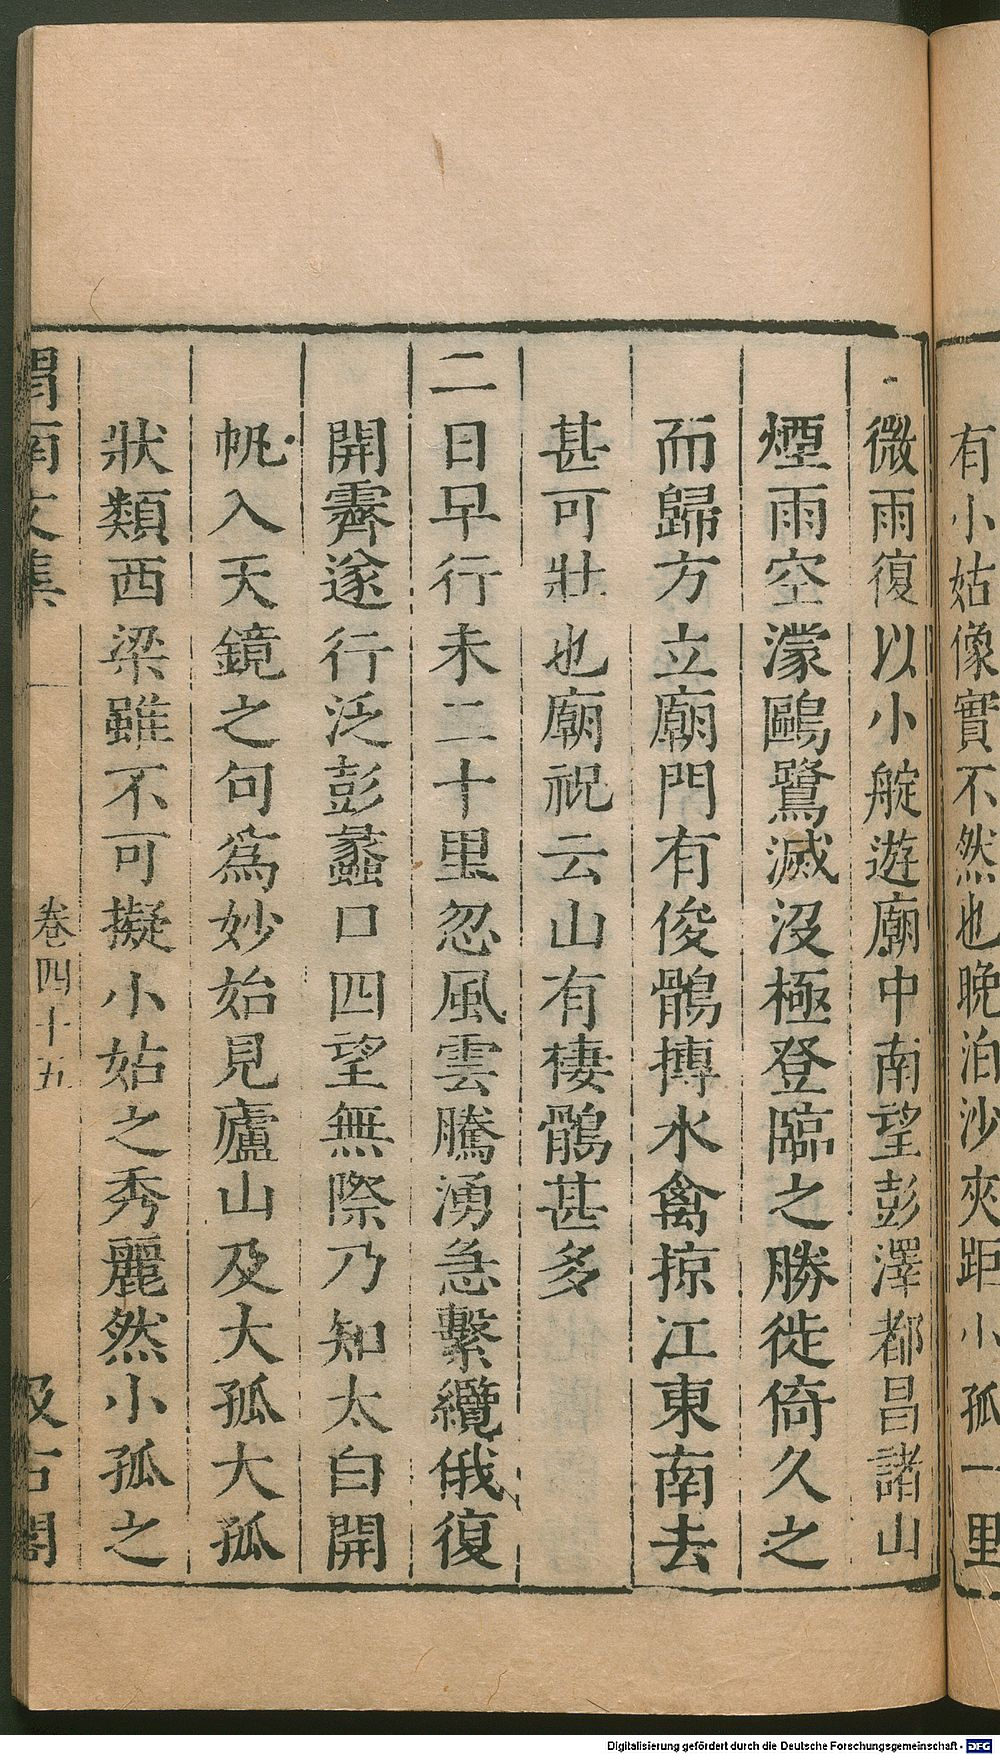 有小姑像實不然也晚泊沙夾距小孤一里
微雨復以小艇遊廟中南望彭澤都昌諸山
煙雨空濛鷗鷺滅沒極登臨之勝徙倚久之
而歸方立廟門有俊鶻摶水禽掠江東南去
甚可壯也廟祝云山有棲鶻甚多
二日早行未二十里忽風雲騰湧急繫纜俄復
開霽遂行泛彭蠡口四望無際乃知太白開
帆入天鏡之句為妙始見廬山及大孤大孤
狀類西梁雖不可擬小姑之秀麗然小孤之
渭南文集 卷四十五 汲古閣
Digitalisierung gefördert durch die Deutsche Forschungsgemeinschaft - DFG